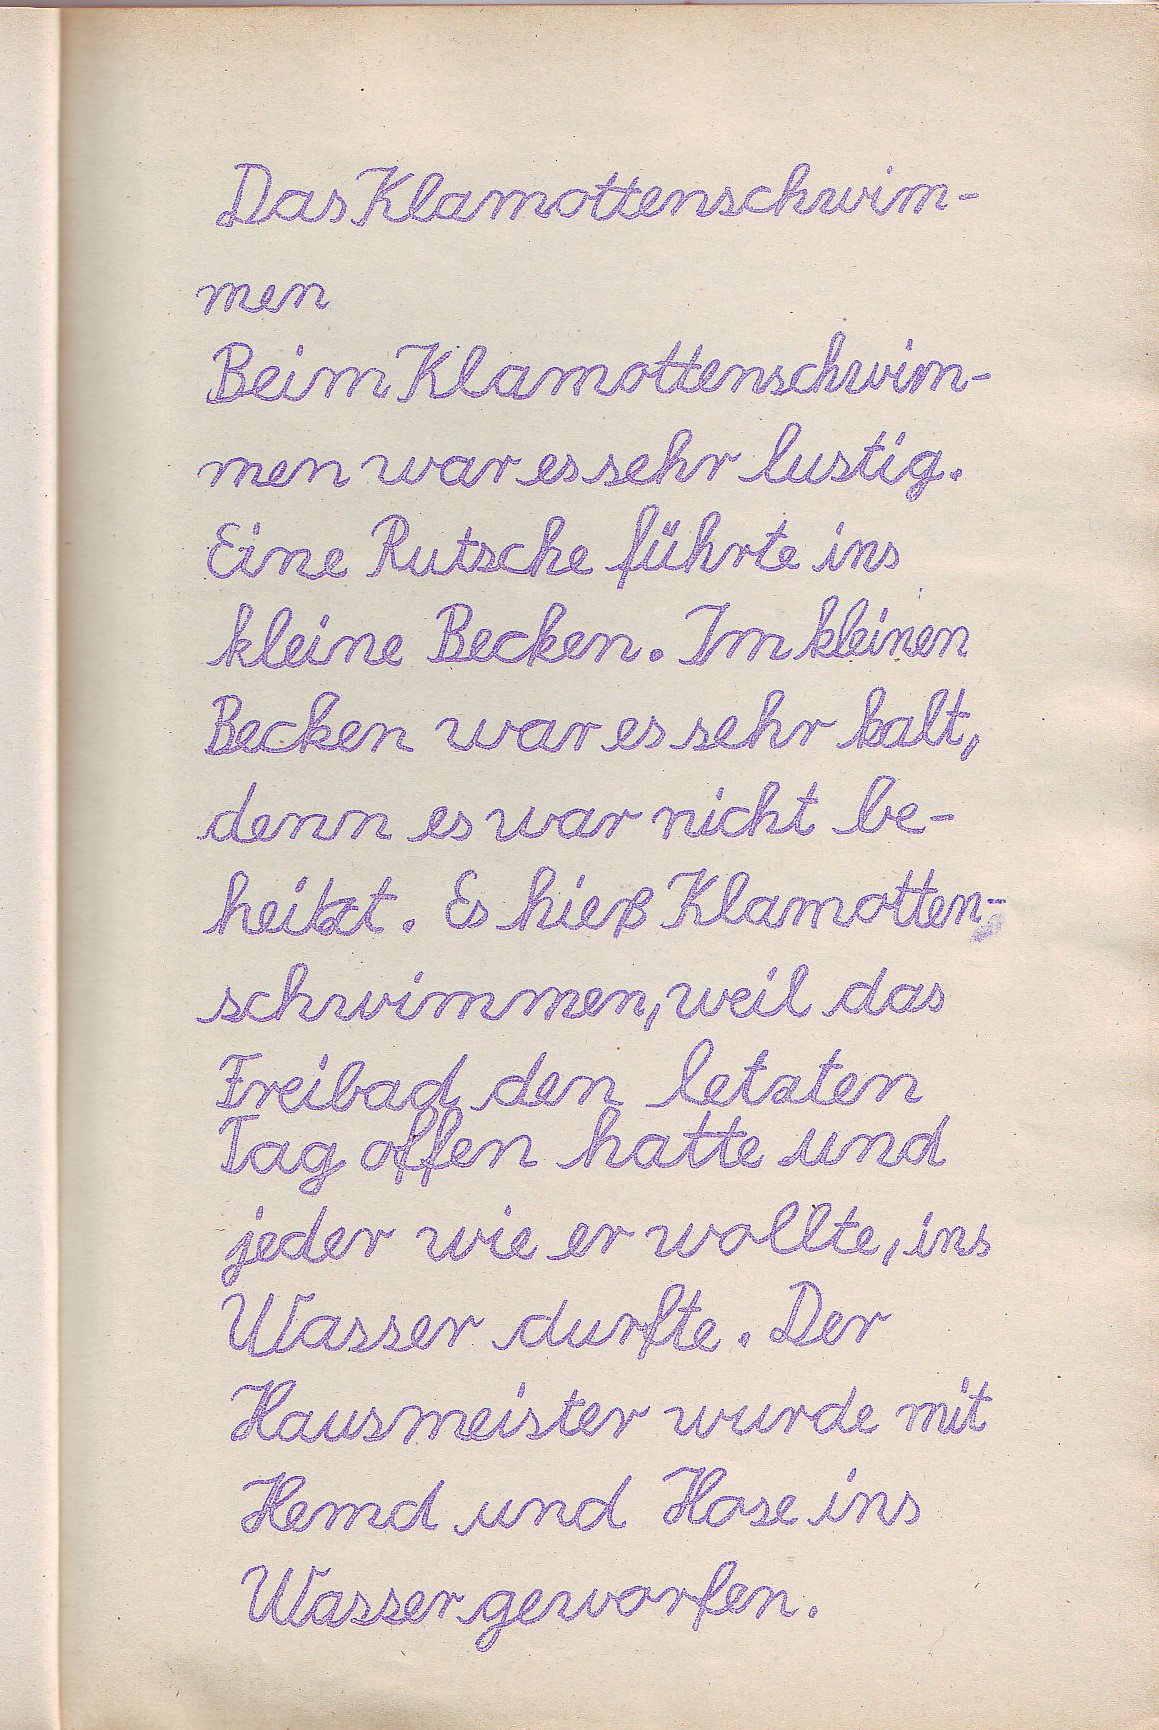 Das Klamottenschwim-
men
Beim Klamottenschwim-
men war es sehr lustig.
Eine Rutsche führte ins
kleine Becken. Im kleinen
Becken war es sehr kalt,
denn es war nicht be-
heitzt. Es hieß Klamotten-
schwimmen, weil das
Freibad den letzten
Tag offen hatte und
jeder wie er wollte, ins
Wasser durfte. Der
Hausmeister wurde mit
Hemd und Hose ins
Wasser geworfen.